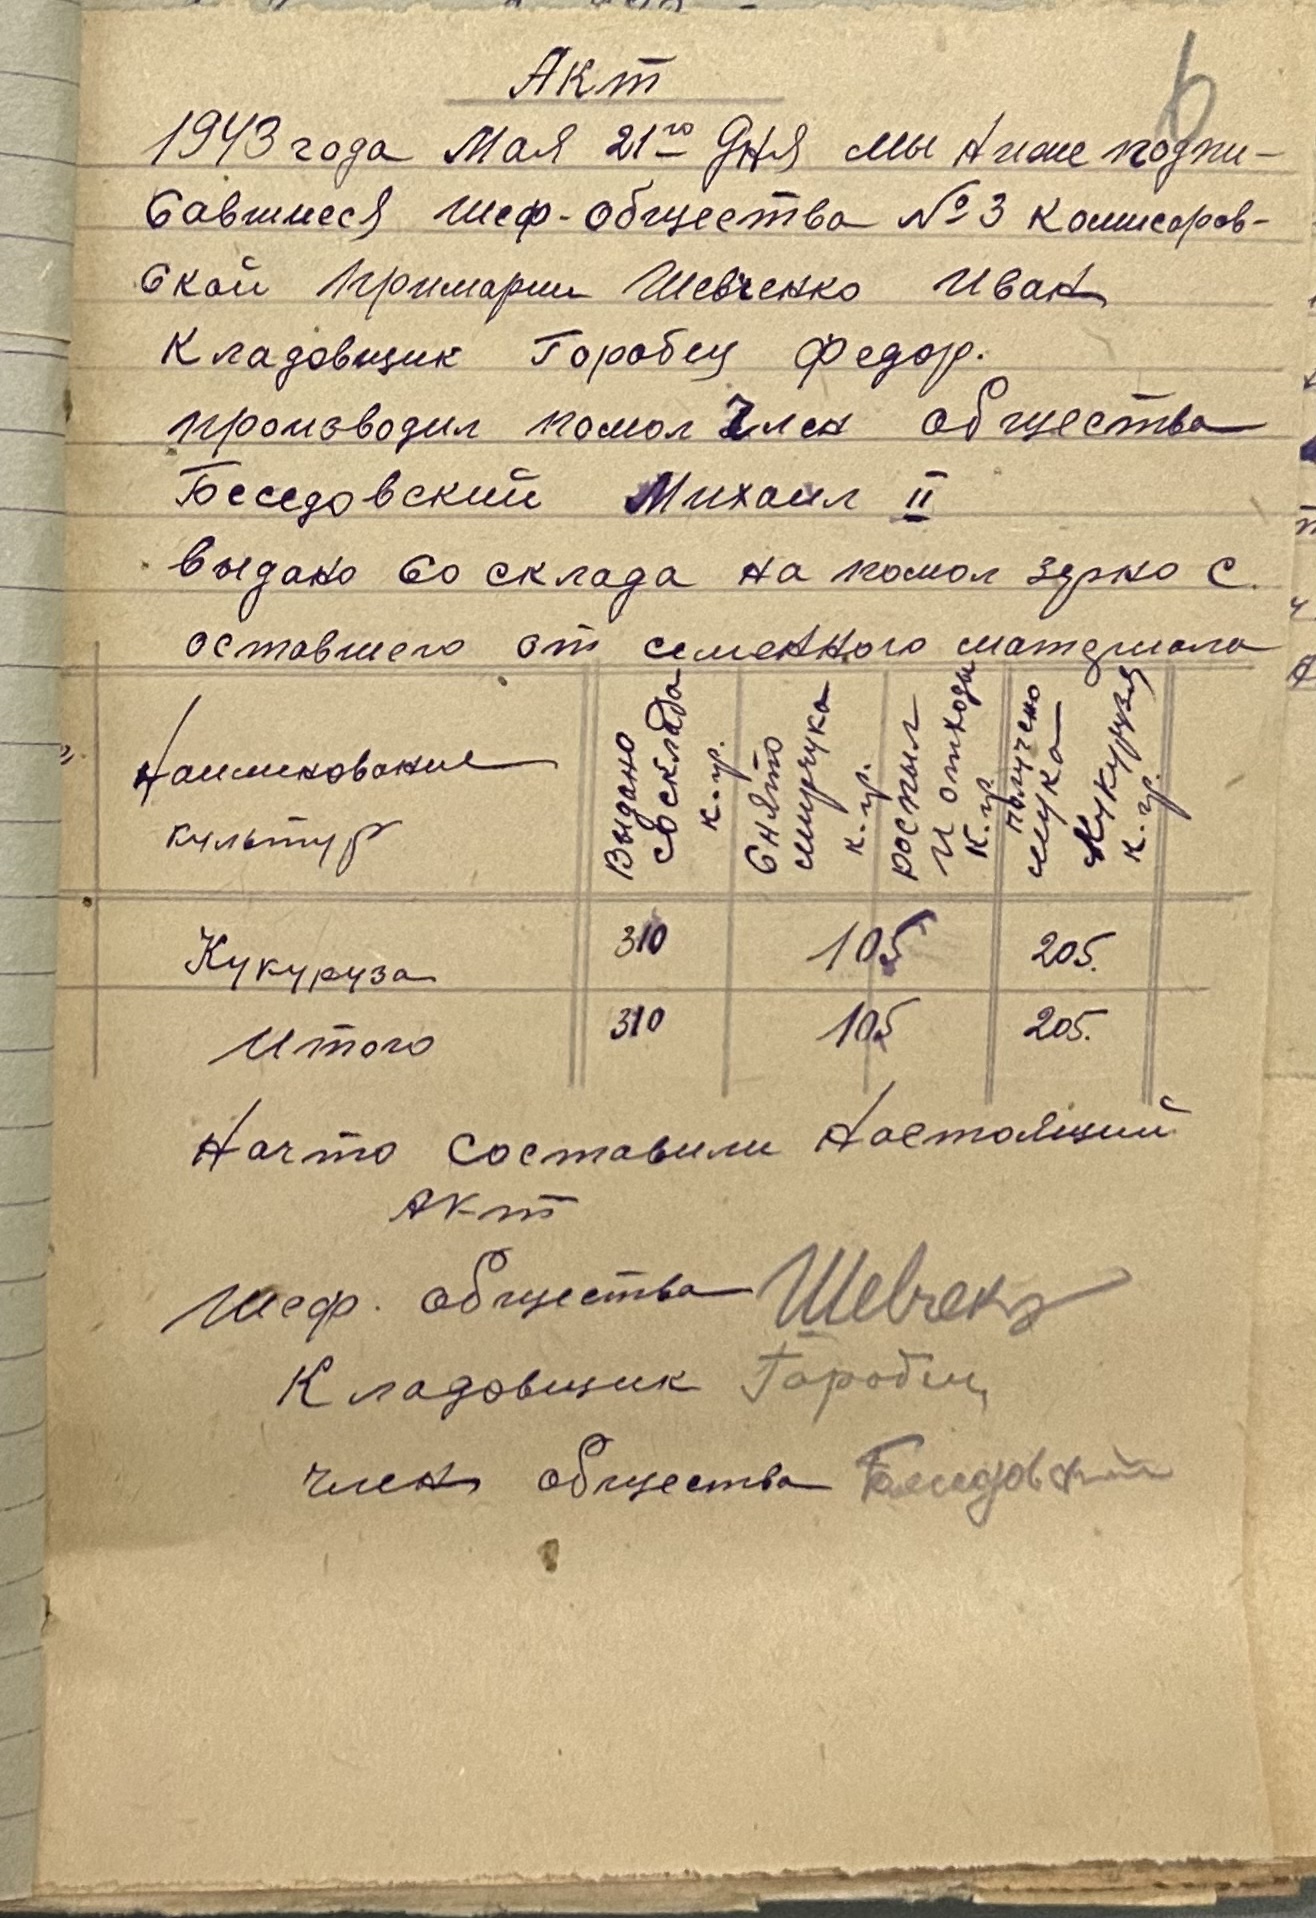 6
Акт
1943 года Мая 21го Дня мы Ниже подпи-
савшиеся шеф-общества №3 Комисаров-
ской примарии Шевченко Иван
Кладовщик Горобец Федор.
производил помол Член общества
Беседовский Михаил II
выдано со склада на помол зерно с.
оставшего от семенного материала
Наименование культур | Выдано со склада к.гр. | Снято мирчука к.гр. | роспыл и отходы к.гр | получено мука Кукурузя к.гр.
Кукуруза | 310 | 105 | 205.
Итого | 310 | 105 | 205.
Начто составили Настоящий
акт
Шеф. общества Шевченко
Кладовщик Горобец
член общества Беседовский